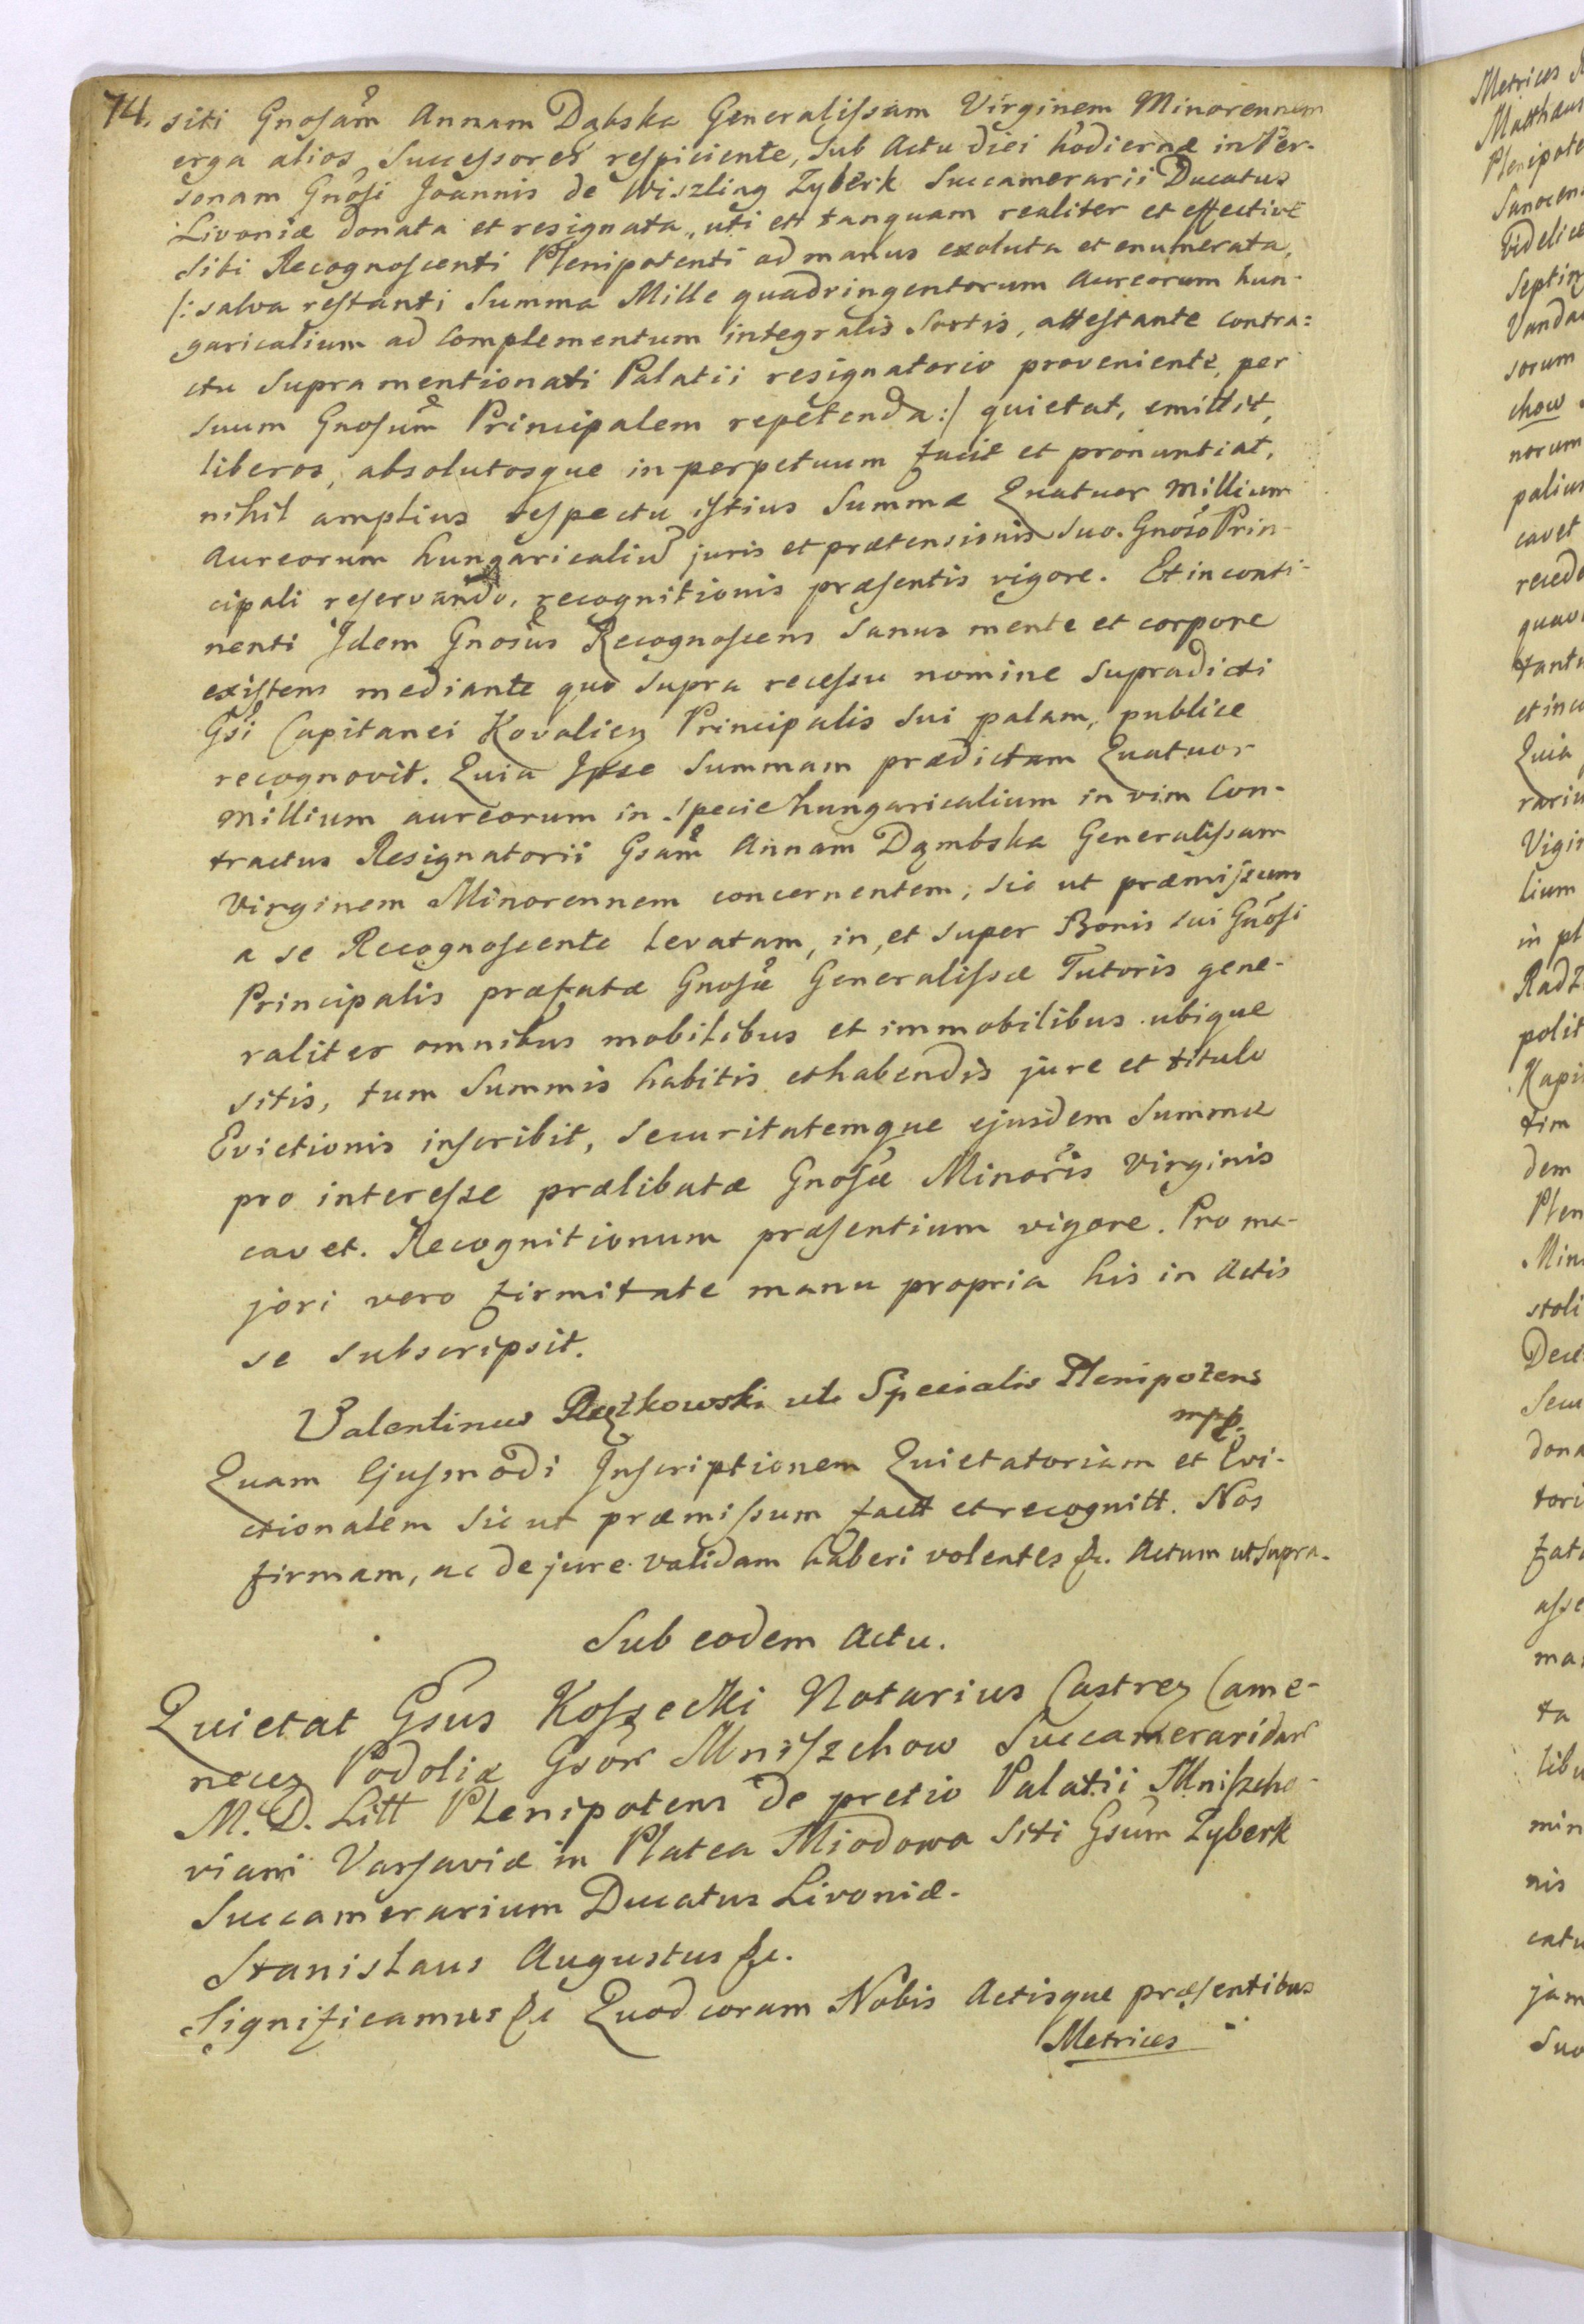 74. siti Gnosam Annam Dąbska Generalissam Virginem Minorennem
erga alios Successores respiciente, Sub Actu diei hodiernæ in Per-
sonam Gnosi Joannis de Wiszling Zyberk Succamerarii Ducatus
Livoniæ donata et resignata, uti et tanquam realiter et effective
Sibi Recognoscenti Plenipotenti ad manus exoluta et enumerata,
/: salva restanti Summa Mille quadringentorum Aureorum hun-
garicalium ad Complementum integralis Sortis, attestante contra:
ctu Supra mentionati Palatii resignatorio proveniente, per
suum Gnosum Principalem repetenda :/ quietat, emittit,
liberos, absolutosque in perpetuum facit et pronuntiat,
nihil amplius respectu istius Summæ Quatuor Millium
Aureorum hungaricaliu juris et prætensionis suo Gnoso Prin-
cipali reservando, recognitionis præsentis vigore. Et in conti-
nenti Idem Gnosus Recognoscens Sanus mente et corpore
existens mediante quo Supra recessu nomine Supradicti
Gsi Capitanei Kovalien Principalis Sui palam, publice
recognovit. Quia Ipse Summam prædictam Quatuor
Millium aureorum in Specie hungaricalium in vim Con-
tractus Resignatorii Gsam Annam Dąmbska Generalissam
Virginem Minorennem concernentem, sic ut præmissum
a se Recognoscente levatam, in, et super Bonis sui Gnosi
Principalis præfatæ Gnosæ Generalissæ Tutoris gene-
raliter omnibus mobilibus et immobilibus ubique
sitis, tum Summis habitis et habendis jure et titulo
Evictionis inscribit, Securitatemque ejusdem Summæ
pro interesse prælibatæ Gnosæ Minoris Virginis
cavet. Recognitionum præsentium vigore. Pro ma-
jori vero firmitate manu propria his in Actis
se subscripsit.
Valentinus uti Specialis Plenipotens
mpp.
Quam Ejusmodi Inscriptionem Quietatoriam et Evi-
ctionalem Sic ut præmissum factt et recognitt. Nos
firmam, ac de jure validam haberi volentes &c. Actum ut supra.
Sub eodem Actu.
Quietat Gsus Kossecki Notarius Castren Came-
necen Podoliæ Gsor Mniszchow Succameraridar
M. D. Litt Plenipotens de pretio Palatii Mniszcho-
viani Varsaviæ in Platea Miodowa Siti Gsum Zyberk
Succamerarium Ducatus Livoniæ.
Stanislaus Augustus &c.
Significamus &c Quod coram Nobis Actisque præsentibus
Metrices